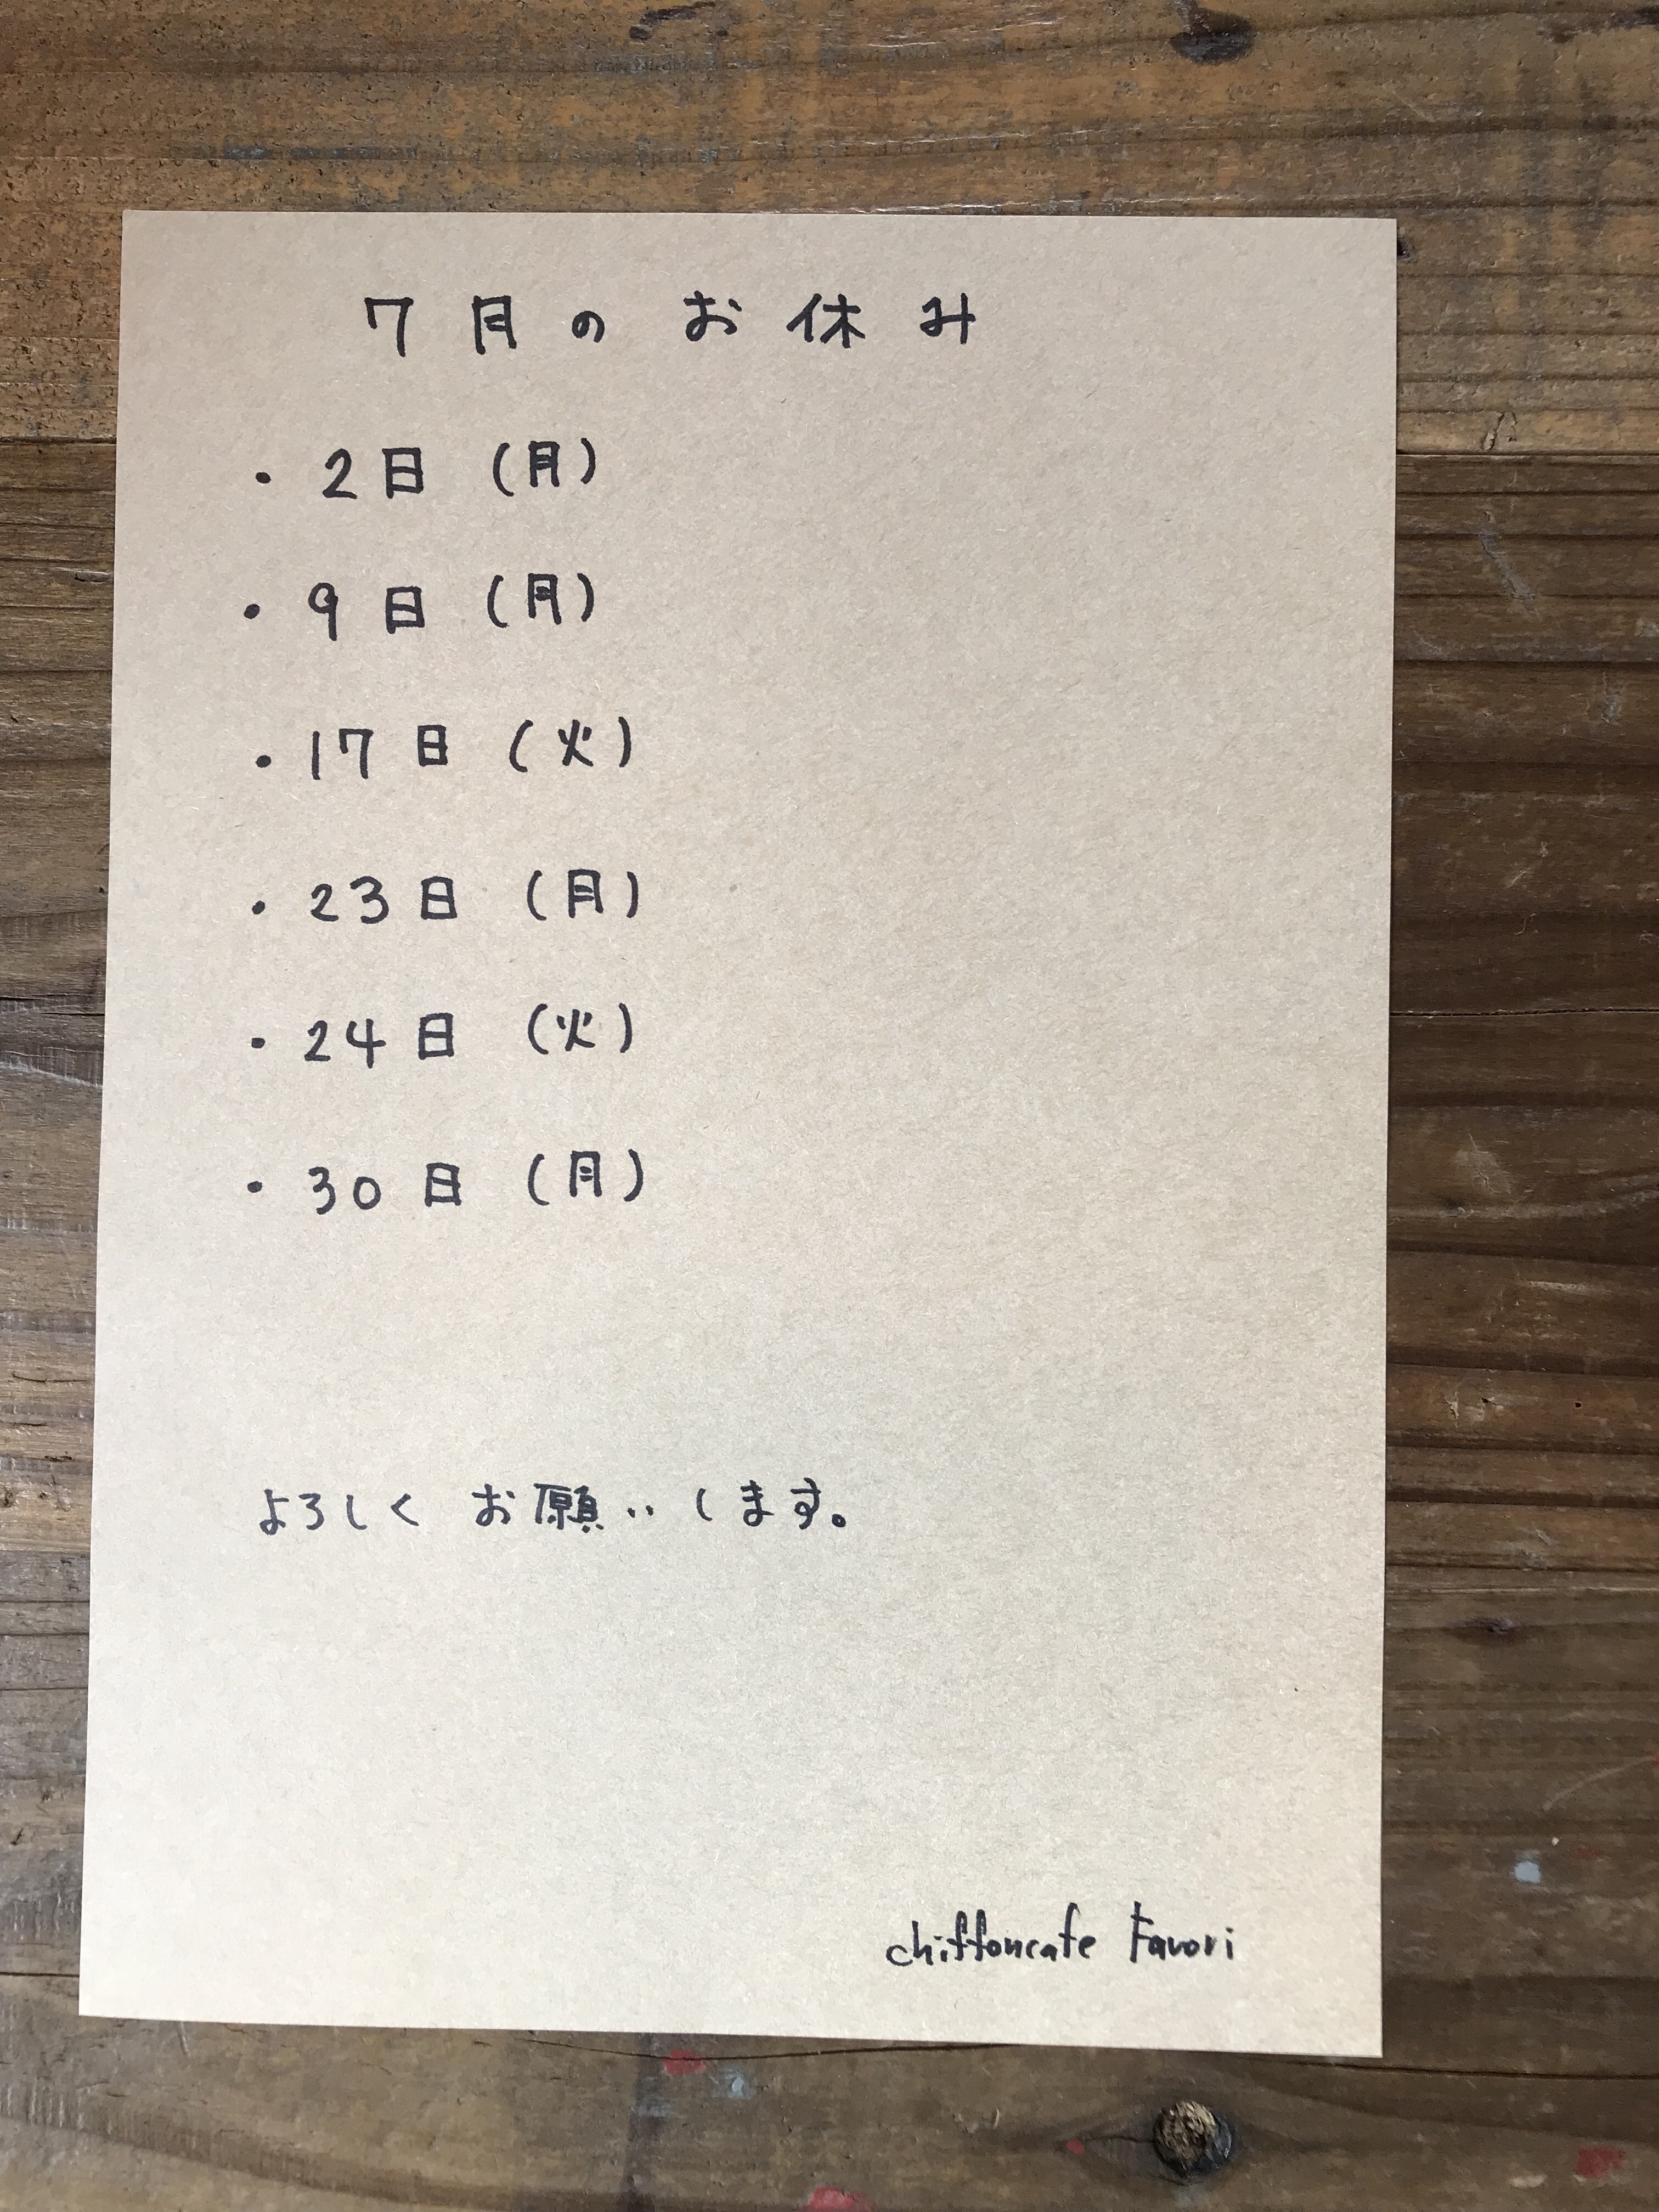 7月のお休み
・2日（月）
・9日（月）
・17日（火）
・23日（月）
・24日（火）
・30日（月）
よろしくお願いします。
chiffoncafe Favori